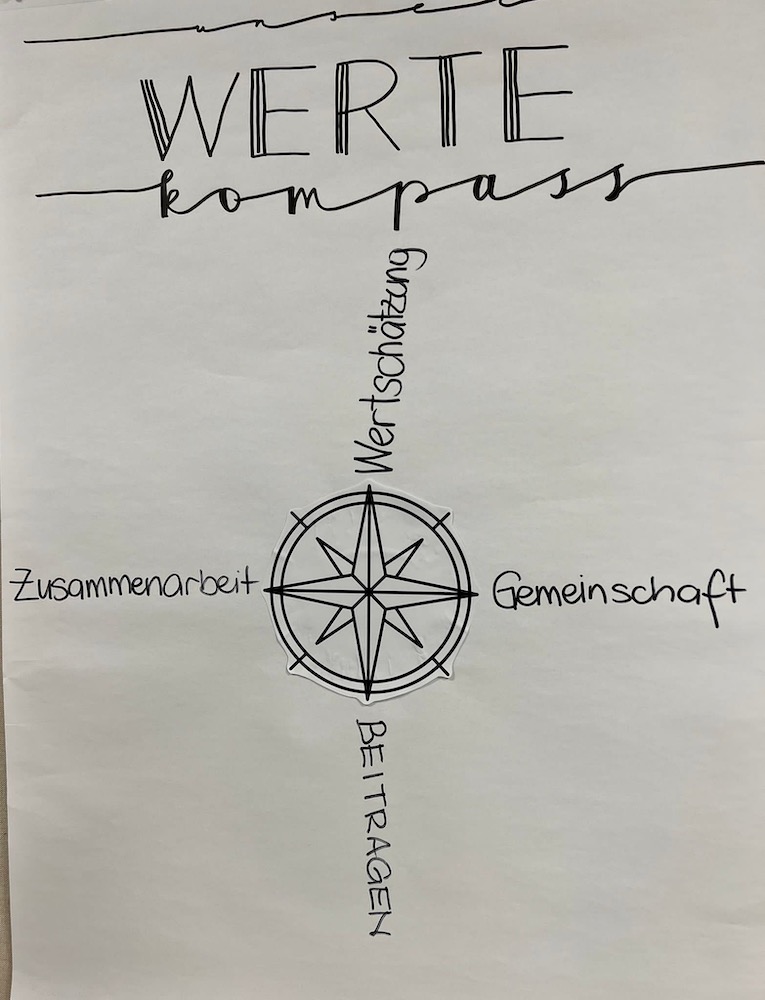 unser
WERTE
kompass
Wertschätzung
Zusammenarbeit
Gemeinschaft
BEITRAGEN